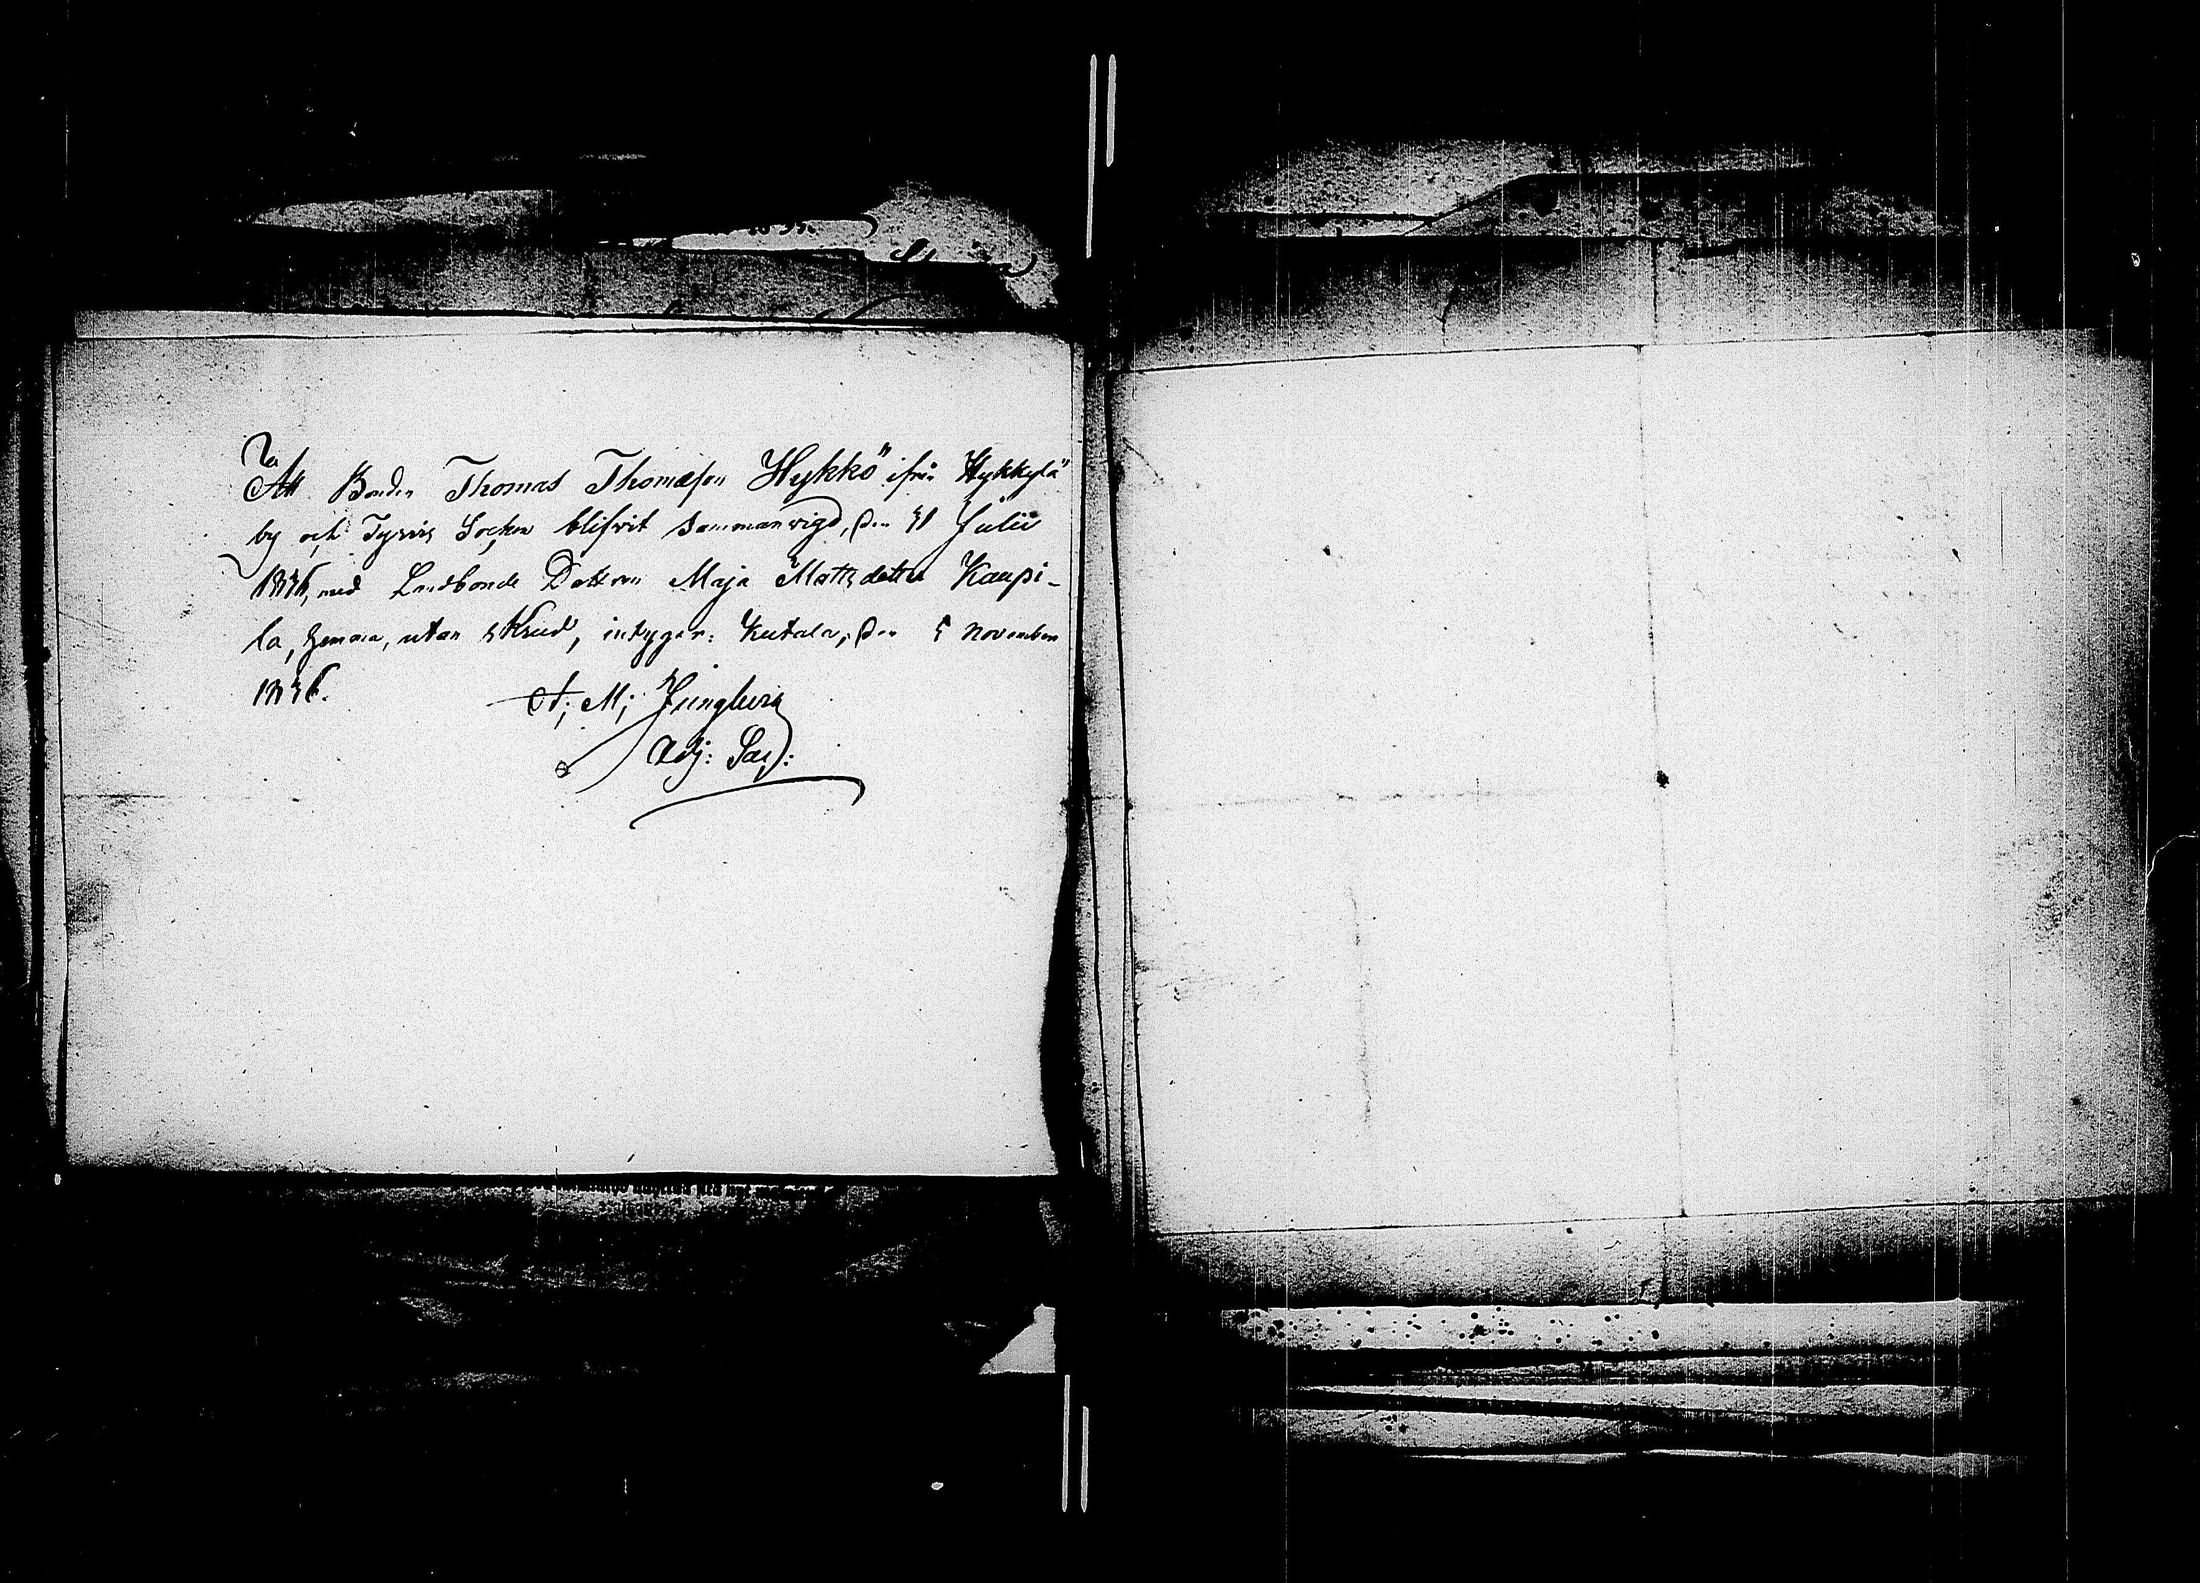 Att Bonden Thomas Thomæson Hykkö ifrån Hykkylä
by och Tyrvis Socken blifvit Sammanvigd, den 31 Julii
1836, med Landbonde Dottren Maja Mattsdotter Kaupi-
la, hemma, utan skrud, intygar: Kutala, den 5 November
1836.
A; M; Ljungberg
Adj: Sac: